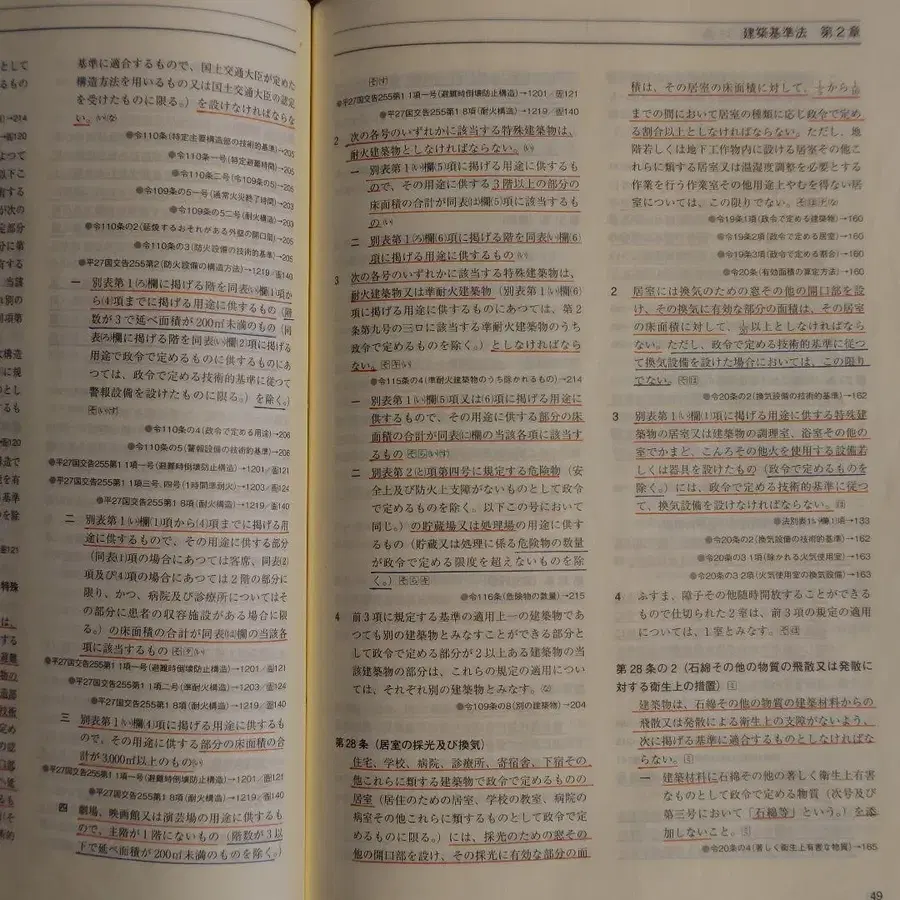 基準に適合するもので、国土交通大臣が定めた
構造方法を用いるもの又は国土交通大臣の認定
を受けたものに限る。）を設けなければならな
い。
●令110条（特定主要構造部の技術的基準）→205
●令110条一号（特定避難時間）→205
●令110条二号（令109条の5）→205
●令109条の5一号（通常火災終了時間）→203
●令109条の5二号（耐火構造）→203
●令110条の2（延焼するおそれがある外壁の開口部）→205
●令110条の3（防火設備の技術的基準）→205
●平27国交告255第2（防火設備の構造方法）→1219／告140
一　別表第1(ろ)欄に掲げる階を同表(い)欄(1)項か
ら(4)項までに掲げる用途に供するもの（階
数が3で延べ面積が200㎡未満のもの（同
表(ろ)欄に掲げる階を同表(い)欄(2)項に掲げる
用途で政令で定めるものに供するものにあ
つては、政令で定める技術的基準に従つて
警報設備を設けたものに限る。）を除く。）
●令110条の4（政令で定める用途）→206
●令110条の5（警報設備の技術的基準）→206
●平27国交告255第1 1項一号（避難時倒壊防止構造）→1201／告121
●平27国交告255第1 1項三号、四号（1時間準耐火）→1203／告124
●平27国交告255第1 8項（耐火構造）→1219／告140
二　別表第1(い)欄(1)項から(4)項までに掲げる用
途に供するもので、その用途に供する部分
（同表(1)項の場合にあつては客席、同表(2)
項及び(4)項の場合にあつては2階の部分に
限り、かつ、病院及び診療所についてはそ
の部分に患者の収容施設がある場合に限
る。）の床面積の合計が同表(は)欄の当該各
項に該当するもの
●平27国交告255第1 1項一号（避難時倒壊防止構造）→1201／告121
●平27国交告255第1 1項二号（準耐火構造）→1203／告
●平27国交告255第1 8項（耐火構造）→1219／告140
三　別表第1(い)欄(4)項に掲げる用途に供するも
ので、その用途に供する部分の床面積の合
計が3,000㎡以上のもの
●平27国交告255第1 1項一号（避難時倒壊防止構造）→1201／告121
●平27国交告255第1 8項（耐火構造）→1219／告140
四　劇場、映画館又は演芸場の用途に供するも
ので、主階が1階にないもの（階数が3以
下で延べ面積が200㎡未満のものを除く。）
建築基準法　第2章
●平27国交告255第1 1項一号（避難時倒壊防止構造）→1201／告121
●平27国交告255第1 8項（耐火構造）→1219／告140
2　次の各号のいずれかに該当する特殊建築物は、
耐火建築物としなければならない。
一　別表第1(い)欄(5)項に掲げる用途に供するも
ので、その用途に供する3階以上の部分の
床面積の合計が同表(は)欄(5)項に該当するも
の
二　別表第1(ろ)欄(6)項に掲げる階を同表(い)欄(6)
項に掲げる用途に供するもの
3　次の各号のいずれかに該当する特殊建築物は、
耐火建築物又は準耐火建築物（別表第1(い)欄(6)
項に掲げる用途に供するものにあつては、第2
条第九号の三ロに該当する準耐火建築物のうち
政令で定めるものを除く。）としなければなら
ない。
●令115条の4（準耐火建築物のうち除かれるもの）→214
一　別表第1(い)欄(5)項又は(6)項に掲げる用途に
供するもので、その用途に供する部分の床
面積の合計が同表(に)欄の当該各項に該当す
るもの
二　別表第2(と)項第四号に規定する危険物（安
全上及び防火上支障がないものとして政令
で定めるものを除く。以下この号において
同じ。）の貯蔵場又は処理場の用途に供す
るもの（貯蔵又は処理に係る危険物の数量
が政令で定める限度を超えないものを除
く。）
●令116条（危険物の数量）→215
4　前3項に規定する基準の適用上一の建築物であ
つても別の建築物とみなすことができる部分と
して政令で定める部分が2以上ある建築物の当
該建築物の部分は、これらの規定の適用につい
ては、それぞれ別の建築物とみなす。
●令109条の8（別の建築物）→204
第28条（居室の採光及び換気）
住宅、学校、病院、診療所、寄宿舎、下宿その
他これらに類する建築物で政令で定めるものの
居室（居住のための居室、学校の教室、病院の
病室その他これらに類するものとして政令で定
めるものに限る。）には、採光のための窓その
他の開口部を設け、その採光に有効な部分の面
積は、その居室の床面積に対して、1/5から1/10
までの間において居室の種類に応じ政令で定め
る割合以上としなければならない。ただし、地
階若しくは地下工作物内に設ける居室その他こ
れらに類する居室又は温湿度調整を必要とする
作業を行う作業室その他用途上やむを得ない居
室については、この限りでない。
●令19条1項（政令で定める建築物）→160
●令19条2項（政令で定める居室）→160
●令19条3項（政令で定める割合）→160
●令20条（有効面積の算定方法）→160
2　居室には換気のための窓その他の開口部を設
け、その換気に有効な部分の面積は、その居室
の床面積に対して、1/20以上としなければなら
ない。ただし、政令で定める技術的基準に従つ
て換気設備を設けた場合においては、この限り
でない。
●令20条の2（換気設備の技術的基準）→162
3　別表第1(い)欄(1)項に掲げる用途に供する特殊建
築物の居室又は建築物の調理室、浴室その他の
室でかまど、こんろその他火を使用する設備若
しくは器具を設けたもの（政令で定めるものを
除く。）には、政令で定める技術的基準に従つ
て、換気設備を設けなければならない。
●法別表1(い)欄(1)項→133
●令20条の2（換気設備の技術的基準）→162
●令20条の3 1項（除かれる火気使用室）→163
●令20条の3 2項（火気使用室の換気設備）→163
4　ふすま、障子その他随時開放することができる
もので仕切られた2室は、前3項の規定の適用
については、1室とみなす。
第28条の2（石綿その他の物質の飛散又は発散に
対する衛生上の措置）
建築物は、石綿その他の物質の建築材料からの
飛散又は発散による衛生上の支障がないよう、
次に掲げる基準に適合するものとしなければな
らない。
一　建築材料に石綿その他の著しく衛生上有害
なものとして政令で定める物質（次号及び
第三号において「石綿等」という。）を添
加しないこと。
●令20条の4（著しく衛生上有害な物質）→165
49